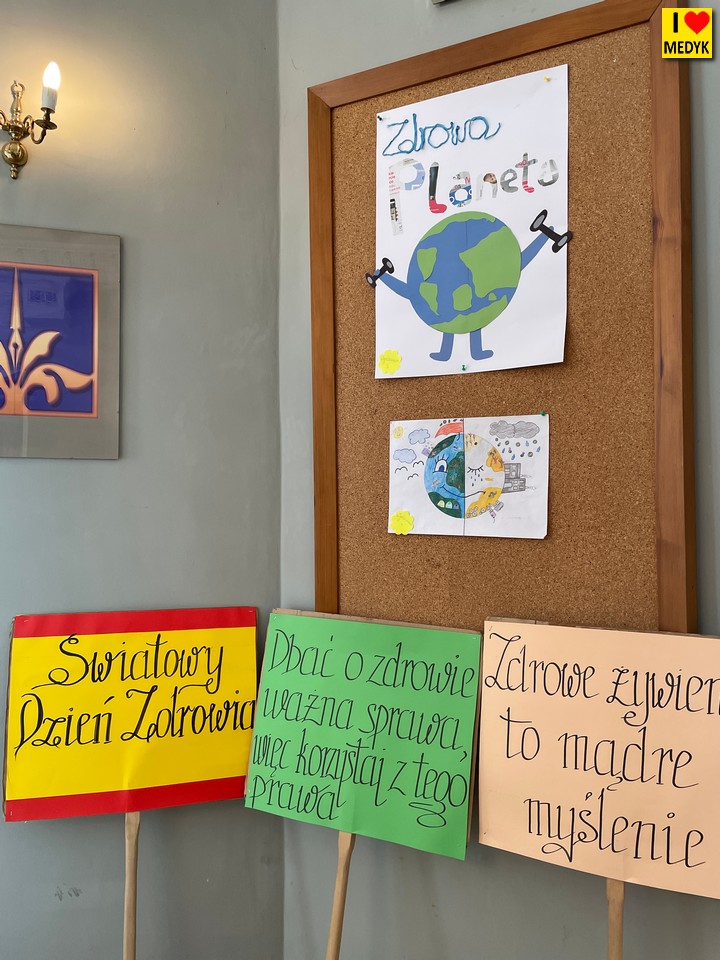 I ❤ MEDYK
Zdrowa
Planeta
Światowy
Dzień Zdrowia
Dbać o zdrowie
ważna sprawa,
więc korzystaj z tego
prawa
Zdrowe żywien
to mądre
myślenie